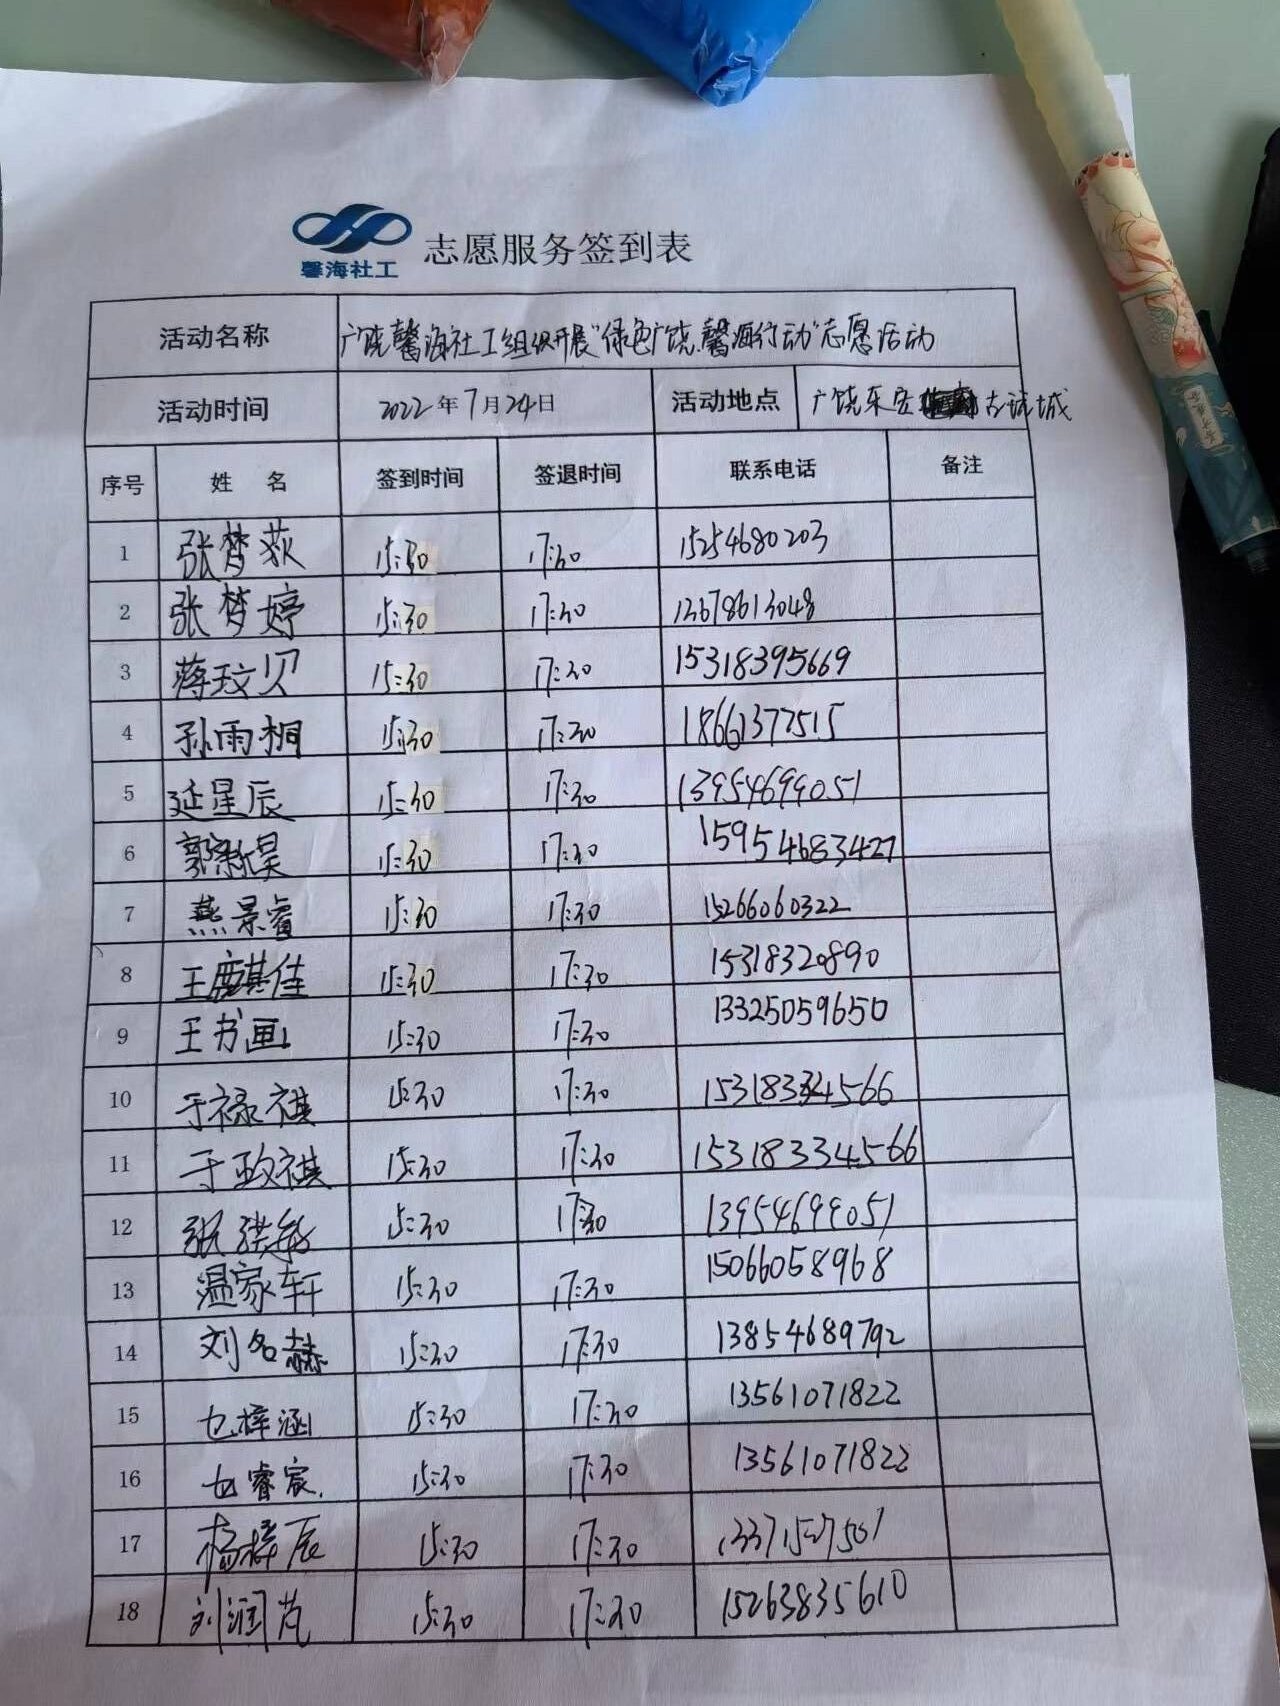 馨海社工 志愿服务签到表
活动名称 广饶馨海社工组织开展"绿色广饶.馨海行动"志愿活动
活动时间 2022年7月24日 活动地点 广饶乐安古城
序号 姓 名 签到时间 签退时间 联系电话 备注
1 张梦荻 15:30 17:30 15254680203
2 张梦婷 15:30 17:30 13678613048
3 蒋玟贝 15:30 17:30 15318395669
4 孙雨桐 15:30 17:30 18661377515
5 延星辰 15:30 17:30 13954699051
6 郭新昊 15:30 17:30 15954683427
7 燕景睿 15:30 17:30 15266060322
8 王麒佳 15:30 17:30 15318320890
9 王书画 15:30 17:30 13325059650
10 于禄祺 15:30 17:30 15318334566
11 于政祺 15:30 17:30 15318334566
12 张洪敏 15:30 17:30 13954699051
13 温家轩 15:30 17:30 15066058968
14 刘名赫 15:30 17:30 13854689792
15 七梓涵 15:30 17:30 13561071822
16 七睿宸. 15:30 17:30 13561071822
17 杨梓辰 15:30 17:30 13371527501
18 刘润芃 15:30 17:30 15263835610